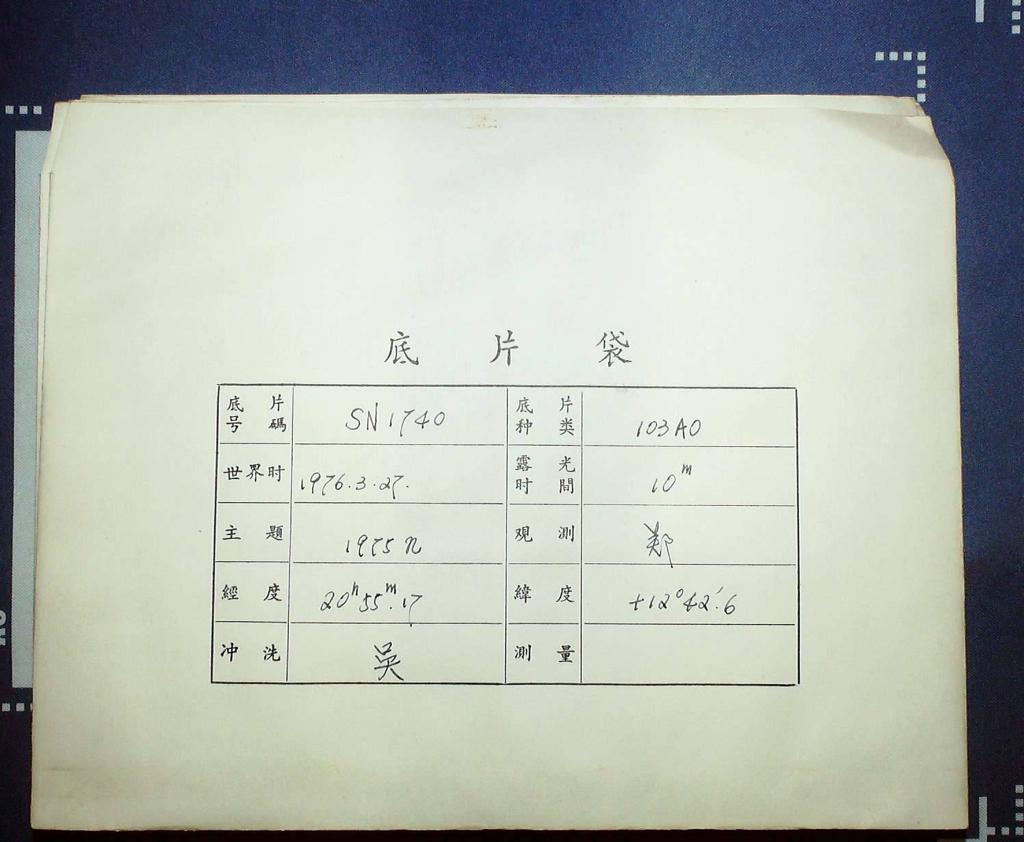 底片袋
底片号碼 SN1740 底片种类 103AO
世界时 1976.3.27. 露光时間 10ᵐ
主題 1975n 观測 郑
經度 20ʰ55ᵐ.17 緯度 +12°42′.6
冲洗 吴 測量